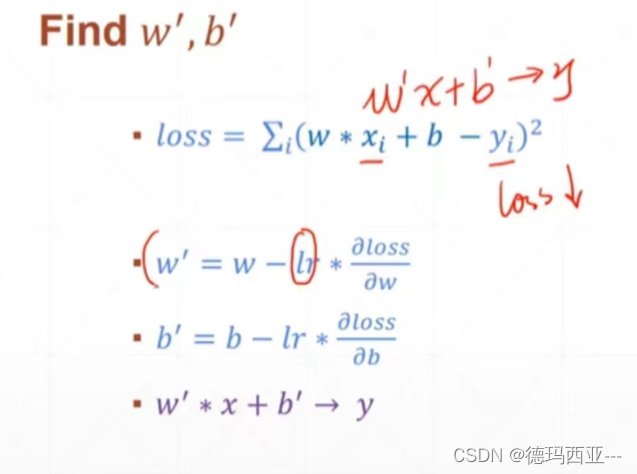 Find w′, b′
w'x+b' → y
▪ loss = ∑ᵢ(w * xᵢ + b − yᵢ)²
loss ↓
▪ w′ = w − lr * ∂loss/∂w
▪ b′ = b − lr * ∂loss/∂b
▪ w′ * x + b′ → y
CSDN @德玛西亚---